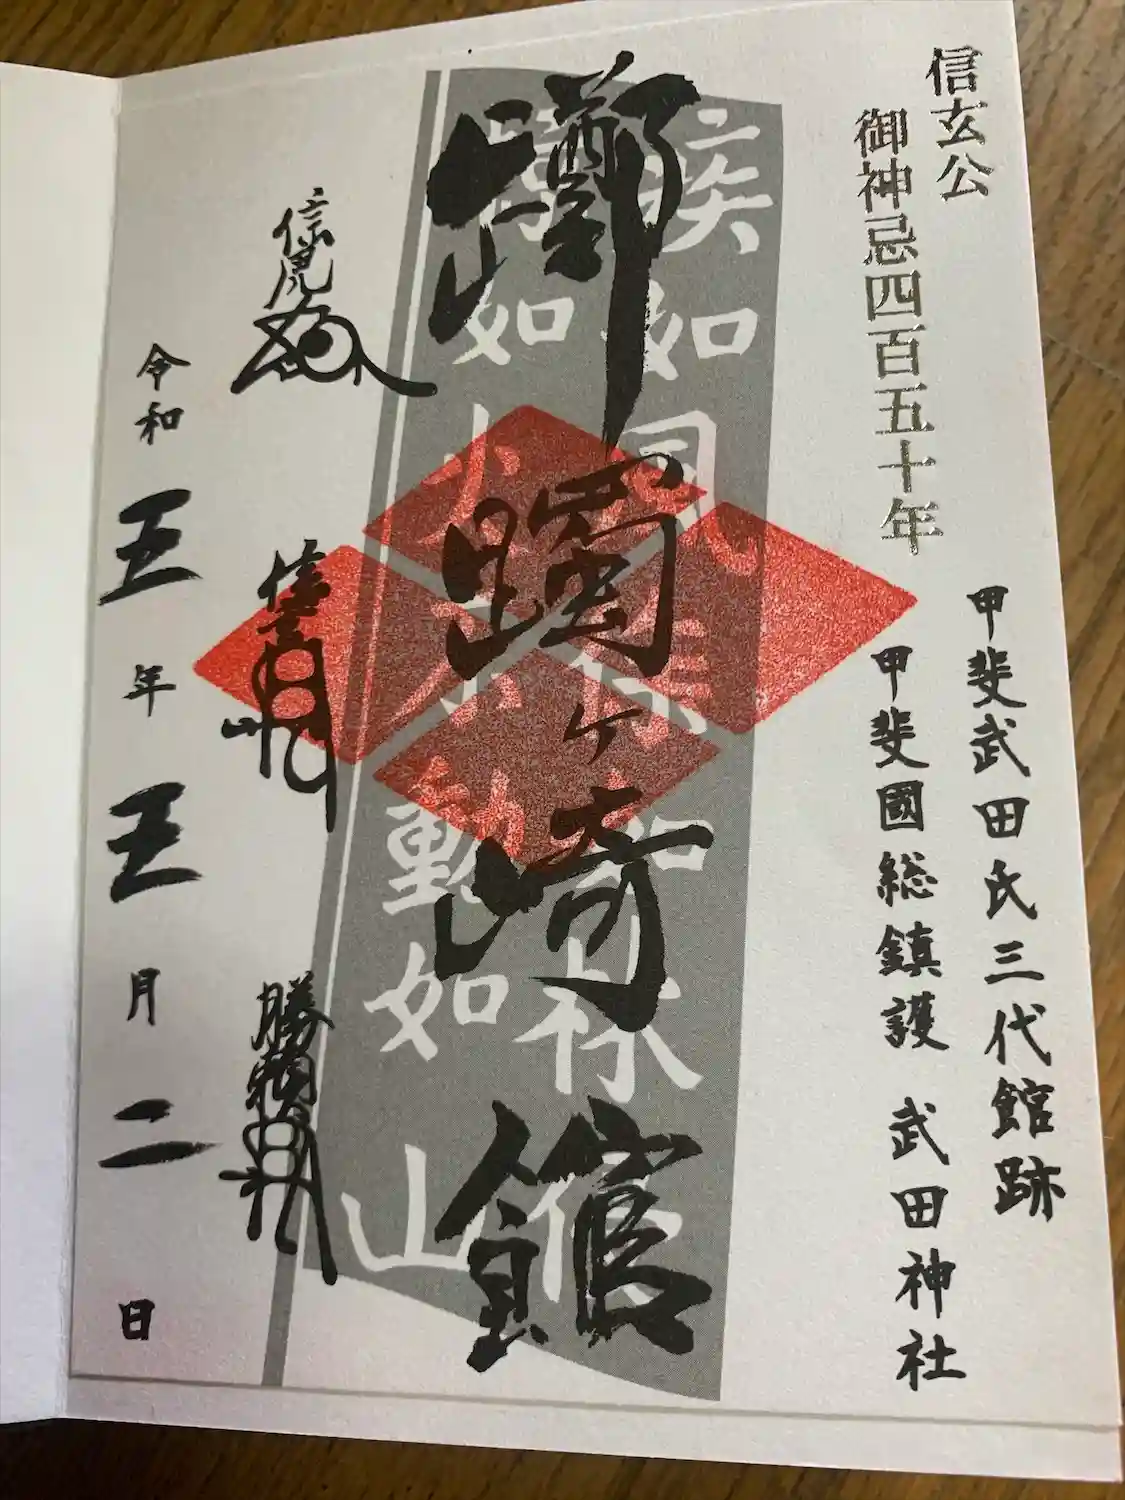 信玄公
御神忌四百五十年
甲斐武田氏三代館跡
甲斐國総鎮護 武田神社
疾如風徐如林侵
掠如火不動如山
躑躅ヶ崎館
信虎
信玄
勝頼
令和五年五月二日